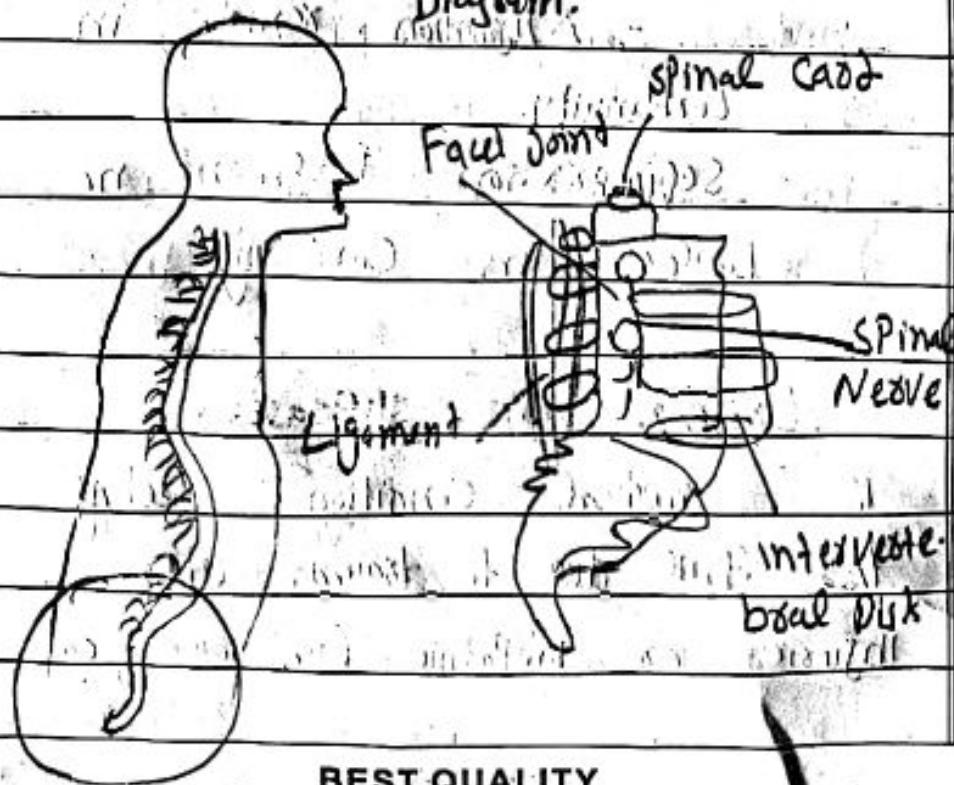 Diagram.
spinal Cord
Facet Joint
Spinal
Nerve
Ligament
Interverte-
bral Disk
BEST QUALITY